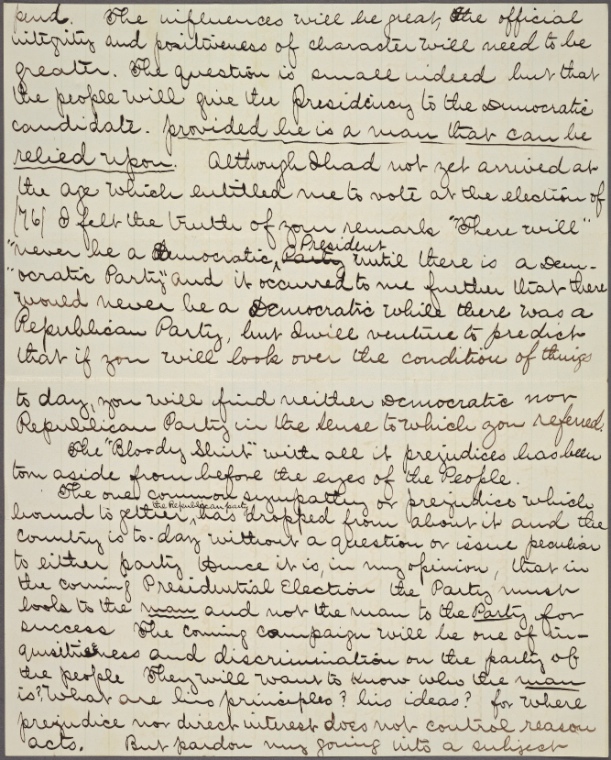 pend. The influences will be great, the official
integrity and positiveness of character will need to be
greater. The question is small indeed but that
the people will give the Presidency to the Democratic
candidate. provided he is a man that can be
relied upon. Although I had not yet arrived at
the age which entitled me to vote at the election of
/76/ I felt the truth of your remark "There will"
"never be a Democratic, Party President until there is a Dem-
"ocratic Party" and it occurred to me further that there
would never be a Democratic while there was a
Republican Party, but I will venture to predict
that if you will look over the condition of things
to day, you will find neither Democratic nor
Republican Party in the sense to which you referred.
The "Bloody Shirt" with all it prejudices has been
torn aside from before the eyes of the People.
The one common sympathy or prejudice which
bound to gether, the Republican party has dropped from about it and the
country is to-day without a question or issue peculiar
to either party Hence it is, in my opinion, that in
the coming Presidential Election the Party must
look to the man and not the man to the Party for
success The coming campaign will be one of in-
quisitiveness and discrimination on the party of
the people They will want to know who the man
is? What are his principles? his ideas? for where
prejudice nor direct interest does not control reason
acts. But pardon my going into a subject